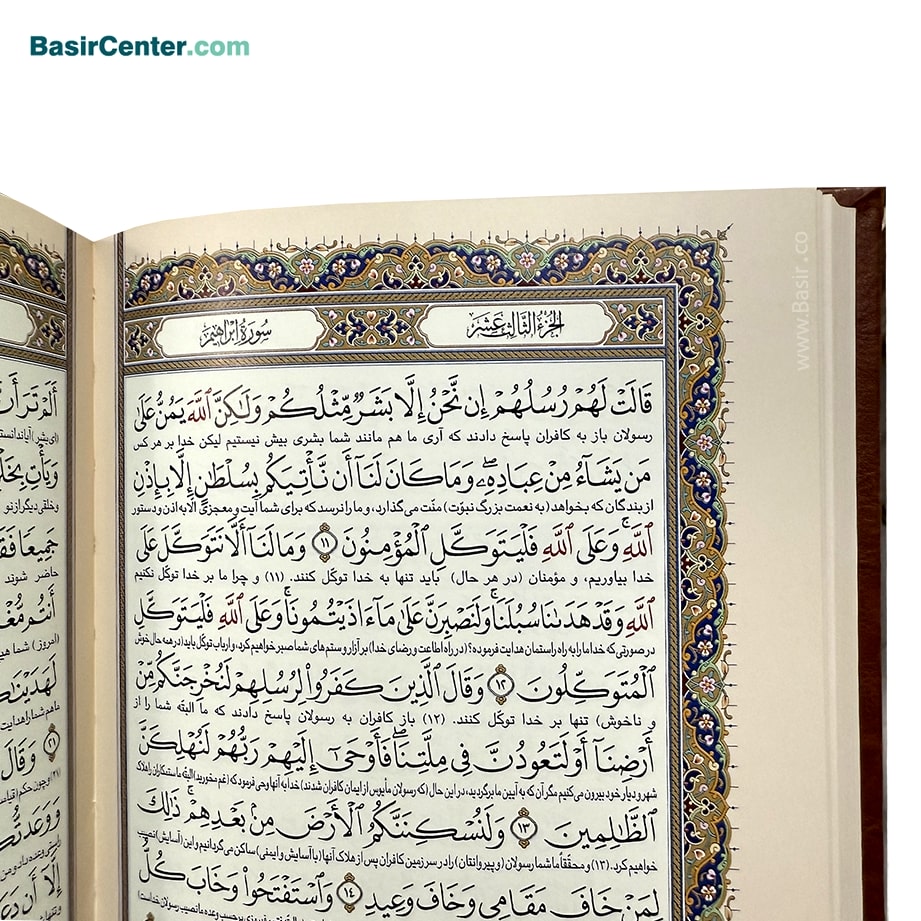 BasirCenter.com
www.Basir.co
الجزء الثالث عشر
سورة ابراهيم
قَالَتْ لَهُمْ رُسُلُهُمْ إِن نَّحْنُ إِلَّا بَشَرٌ مِّثْلُكُمْ وَلَٰكِنَّ ٱللَّهَ يَمُنُّ عَلَىٰ
رسولان باز به کافران پاسخ دادند که آری ما هم مانند شما بشری بیش نیستیم لیکن خدا بر هر کس
مَن يَشَاءُ مِنْ عِبَادِهِۦ وَمَا كَانَ لَنَا أَن نَّأْتِيَكُم بِسُلْطَٰنٍ إِلَّا بِإِذْنِ
از بندگان که بخواهد (به نعمت بزرگ نبوّت) منّت می‌گذارد، و ما را نرسد که برای شما آیت و معجزی الّا به اذن و دستور
ٱللَّهِ وَعَلَى ٱللَّهِ فَلْيَتَوَكَّلِ ٱلْمُؤْمِنُونَ ١١ وَمَا لَنَا أَلَّا نَتَوَكَّلَ عَلَى
خدا بیاوریم، و مؤمنان (در هر حال) باید تنها به خدا توکّل کنند. (۱۱) و چرا ما بر خدا توکّل نکنیم
ٱللَّهِ وَقَدْ هَدَىٰنَا سُبُلَنَا وَلَنَصْبِرَنَّ عَلَىٰ مَا ءَاذَيْتُمُونَا وَعَلَى ٱللَّهِ فَلْيَتَوَكَّلِ
در صورتی که خدا ما را به راه راستمان هدایت فرموده؟ (در راه اطاعت و رضای خدا) بر آزار و ستم‌های شما صبر خواهیم کرد، و ارباب توکّل باید (در همه حال خوش
ٱلْمُتَوَكِّلُونَ ١٢ وَقَالَ ٱلَّذِينَ كَفَرُوا لِرُسُلِهِمْ لَنُخْرِجَنَّكُم مِّنْ
و ناخوش) تنها بر خدا توکّل کنند. (۱۲) باز کافران به رسولان پاسخ دادند که ما البتّه شما را از
أَرْضِنَا أَوْ لَتَعُودُنَّ فِي مِلَّتِنَا فَأَوْحَىٰ إِلَيْهِمْ رَبُّهُمْ لَنُهْلِكَنَّ
شهر و دیار خود بیرون می‌کنیم مگر آن که به آیین ما برگردید، در این حال (که رسولان مأیوس از ایمان کافران شدند) خدا به آنها وحی فرمود که (غم مخورید) البتّه ما ستمکاران را هلاک
ٱلظَّٰلِمِينَ ١٣ وَلَنُسْكِنَنَّكُمُ ٱلْأَرْضَ مِنۢ بَعْدِهِمْ ذَٰلِكَ
خواهیم کرد. (۱۳) و محقّقاً ما شما رسولان (و پیروانتان) را در سر زمین کافران پس از هلاک آنها (با آسایش و ایمنی) ساکن می‌گردانیم و این (آسایش) نصیب
لِمَنْ خَافَ مَقَامِي وَخَافَ وَعِيدِ ١٤ وَٱسْتَفْتَحُوا وَخَابَ كُلُّ
أَلَمْ تَرَ أَنَّ
وَيَأْتِ بِخَلْقٍ
وخلقی دیگر از نو
جَمِيعًا فَقَالَ
حاضر شوند
أَنتُم مُّغْ
لَهَدَيْنَٰكُمْ
ما هم شما را هدایت
٢١ وَقَالَ
وَوَعَدتُّكُمْ
إِلَّا أَن دَعَ